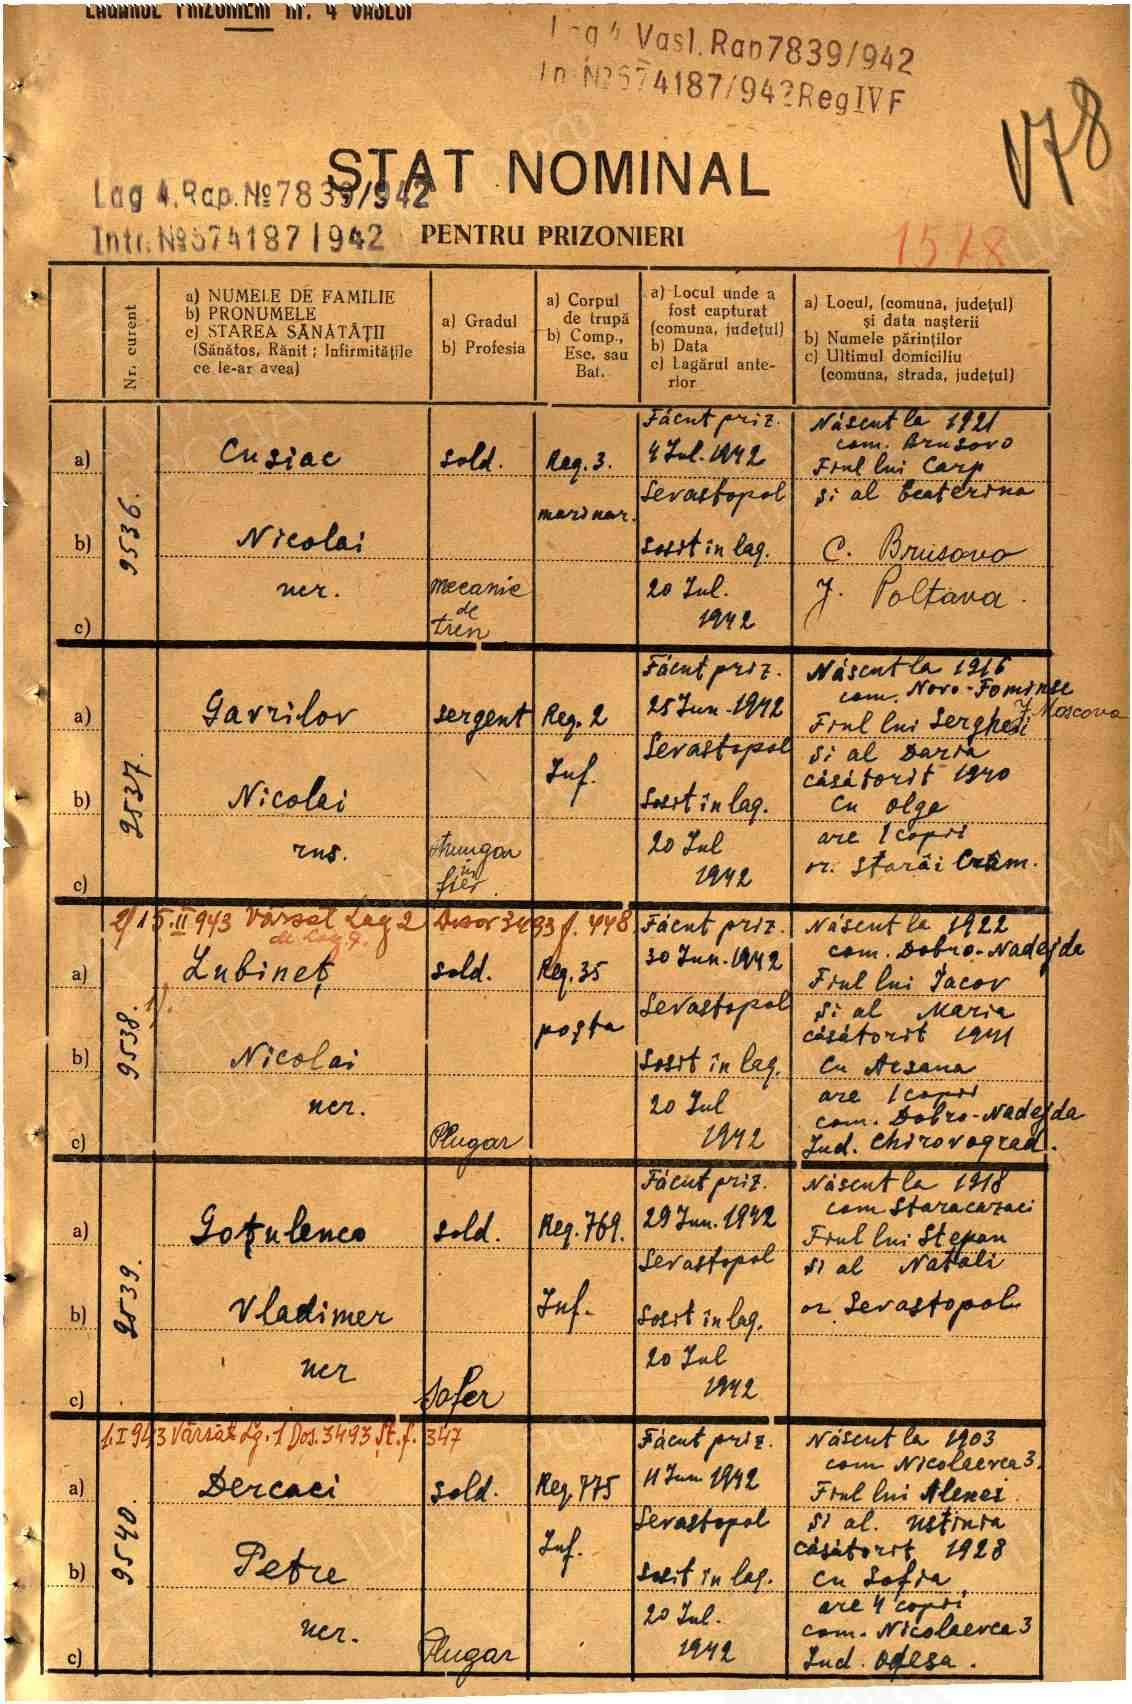 LAGĂRUL PRIZONIERI nr. 4 VASLUI
Lag 4 Vasl. Rap 7839/942
In. № 574187/942 Reg IV F
V78
STAT NOMINAL
Lag 4. Rap. № 7839/942
Intr. № 574187/942
PENTRU PRIZONIERI
1518
Nr. curent
a) NUMELE DE FAMILIE
b) PRONUMELE
c) STAREA SĂNĂTĂȚII
(Sănătos, Rănit ; Infirmitățile
ce le-ar avea)
a) Gradul
b) Profesia
a) Corpul
de trupă
b) Comp.,
Esc. sau
Bat.
a) Locul unde a
fost capturat
(comuna, județul)
b) Data
c) Lagărul ante-
rior
a) Locul, (comuna, județul)
și data nașterii
b) Numele părinților
c) Ultimul domiciliu
(comuna, strada, județul)
9536.
a)
b)
c)
Cusiac
Nicolai
ucr.
sold.
mecanic
de
tren
Reg. 3.
marinar.
Făcut priz.
4 Iul. 1942
Sevastopol
Sosit în lag.
20 Iul.
1942
Născut la 1921
com. Brusovo
Fiul lui Carp
și al Ecaterina
C. Brusovo
J. Poltava.
9537.
a)
b)
c)
Gavrilov
Nicolai
rus.
sergent
strungar
în
fier.
Reg. 2
Inf.
Făcut priz.
25 Iun. 1942
Sevastopol
Sosit în lag.
20 Iul
1942
Născut la 1916
com. Novo-Fominsc
J. Moscova
Fiul lui Serghei
și al Daria
căsătorit 1940
cu Olga
are 1 copri
or. Starâi Crâm.
2/ 15.II 943 Vărsat Lag 2 Dosar 3493 f. 448
de Lag 4.
9538.
1/.
a)
b)
c)
Lubineț
Nicolai
ucr.
sold.
Plugar
Reg. 35
poșta
Făcut priz.
30 Iun. 1942
Sevastopol
Sosit în lag.
20 Iul
1942
Născut la 1922
com. Dobro-Nadejda
Fiul lui Iacov
și al Maria
căsătorit 1941
cu Acsana
are 1 copri
com. Dobro-Nadejda
Jud. Chirovograd.
9539.
a)
b)
c)
Goțulenco
Vladimer
ucr
sold.
Șofer
Reg. 769.
Inf.
Făcut priz.
29 Iun. 1942
Sevastopol
Sosit în lag.
20 Iul
1942
Născut la 1918
com Staracazaci
Fiul lui Stepan
și al Natali
or. Sevastopol
1.I 943 Vărsat Lg. 1 Dos. 3493 St. f. 347
9540.
a)
b)
c)
Dercaci
Petre
ucr.
sold.
Plugar
Reg. 775
Inf.
Făcut priz.
11 Iun 1942
Sevastopol
Sosit în lag.
20 Iul.
1942
Născut la 1903
com Nicolaevca 3.
Fiul lui Alexei
și al. Ustinia
căsătorit 1928
cu Sofia
are 4 copri
com. Nicolaevca 3
Jud. Odesa.